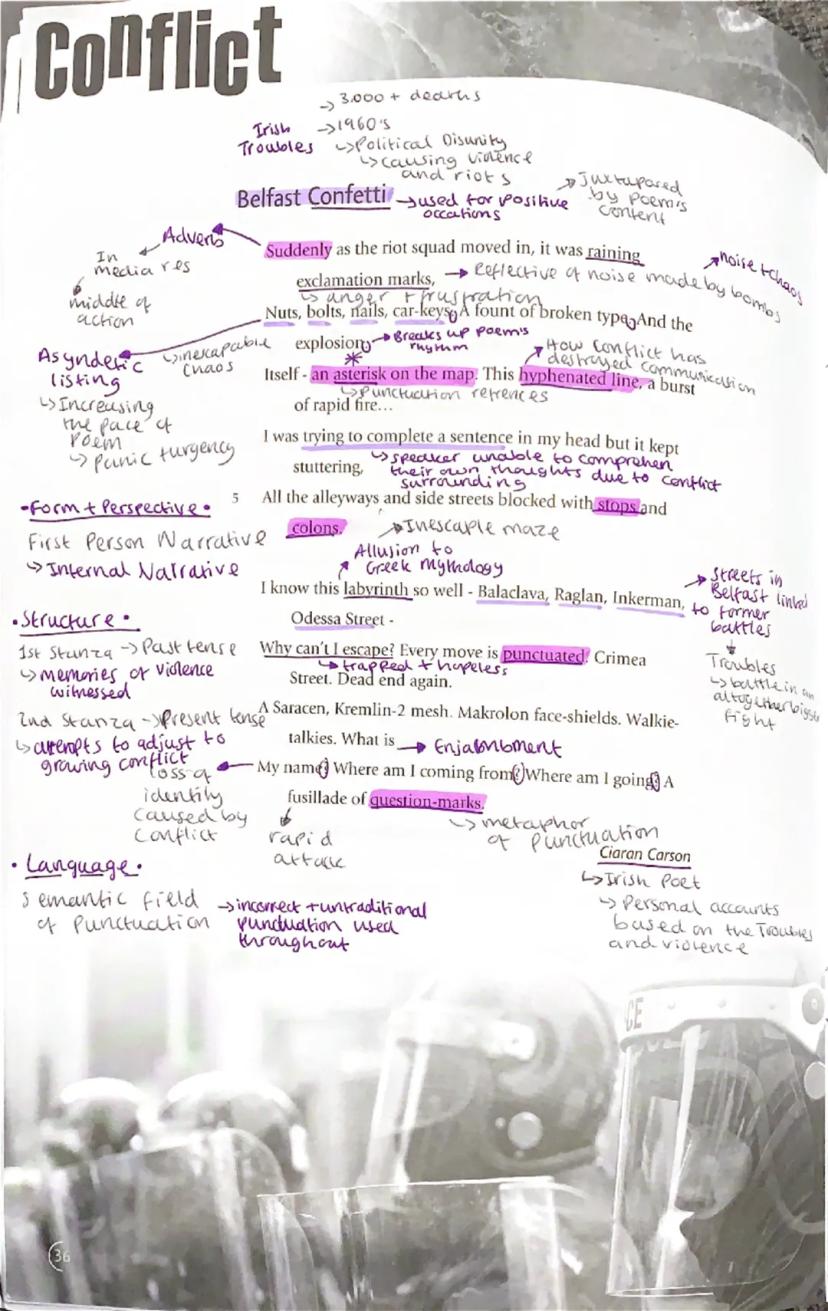 Conflict
→ 3.000 + deaths
Irish Troubles → 1960's
↳ Political Disunity
↳ causing violence
and riots
Belfast Confetti → used for positive
occations
→ Juxtaposed
by poem's
content
Adverb
In
media res
middle of
action
Suddenly as the riot squad moved in, it was raining
noise + chaos
exclamation marks, → Reflective of noise made by bombs
↳ anger + frustration
Nuts, bolts, nails, car-keys. A fount of broken type. And the
explosion → Breaks up poem's
rhythm
Asyndetic
listing
↳ inescapable
chaos
↳ Increasing
the pace of
poem
↳ panic + urgency
How conflict has
destroyed communication
*
Itself - an asterisk on the map. This hyphenated line, a burst
↳ Punctuation refrences
of rapid fire…
I was trying to complete a sentence in my head but it kept
stuttering, ↳ speaker unable to comprehen
their own thoughts due to conflict
surrounding
5 All the alleyways and side streets blocked with stops and
colons. → Inescaple maze
• Form + Perspective •
First Person Narrative
↳ Internal Narrative
Allusion to
Greek Mythology
I know this labyrinth so well - Balaclava, Raglan, Inkerman,
Odessa Street -
→ Streets in
Belfast linked
to former
battles
Troubles
↳ battle in an
altogether bigger
fight
• Structure •
1st Stanza → Past tense
↳ memories of violence
witnessed
Why can't I escape? Every move is punctuated. Crimea
↳ trapped + hopeless
Street. Dead end again.
2nd Stanza → Present tense
↳ attempts to adjust to
growing conflict
A Saracen, Kremlin-2 mesh. Makrolon face-shields. Walkie-
talkies. What is → Enjambment
loss of
identity
caused by
conflict
My name? Where am I coming from? Where am I going? A
fusillade of question-marks.
rapid
attack
↳ metaphor
of punctuation
Ciaran Carson
↳ Irish Poet
↳ Personal accounts
based on the Troubles
and violence
• Language •
Semantic field
of Punctuation → incorrect + untraditional
punctuation used
throughout
CE
36